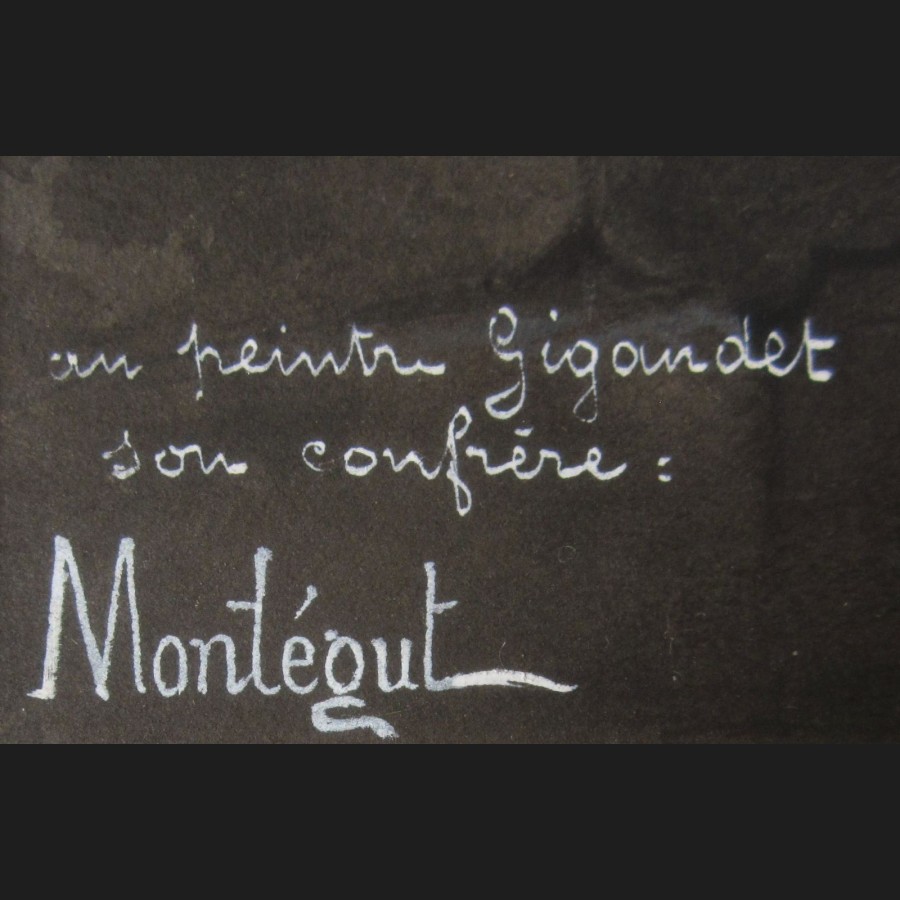 au peintre Gigandet
son confrère :
Montégut